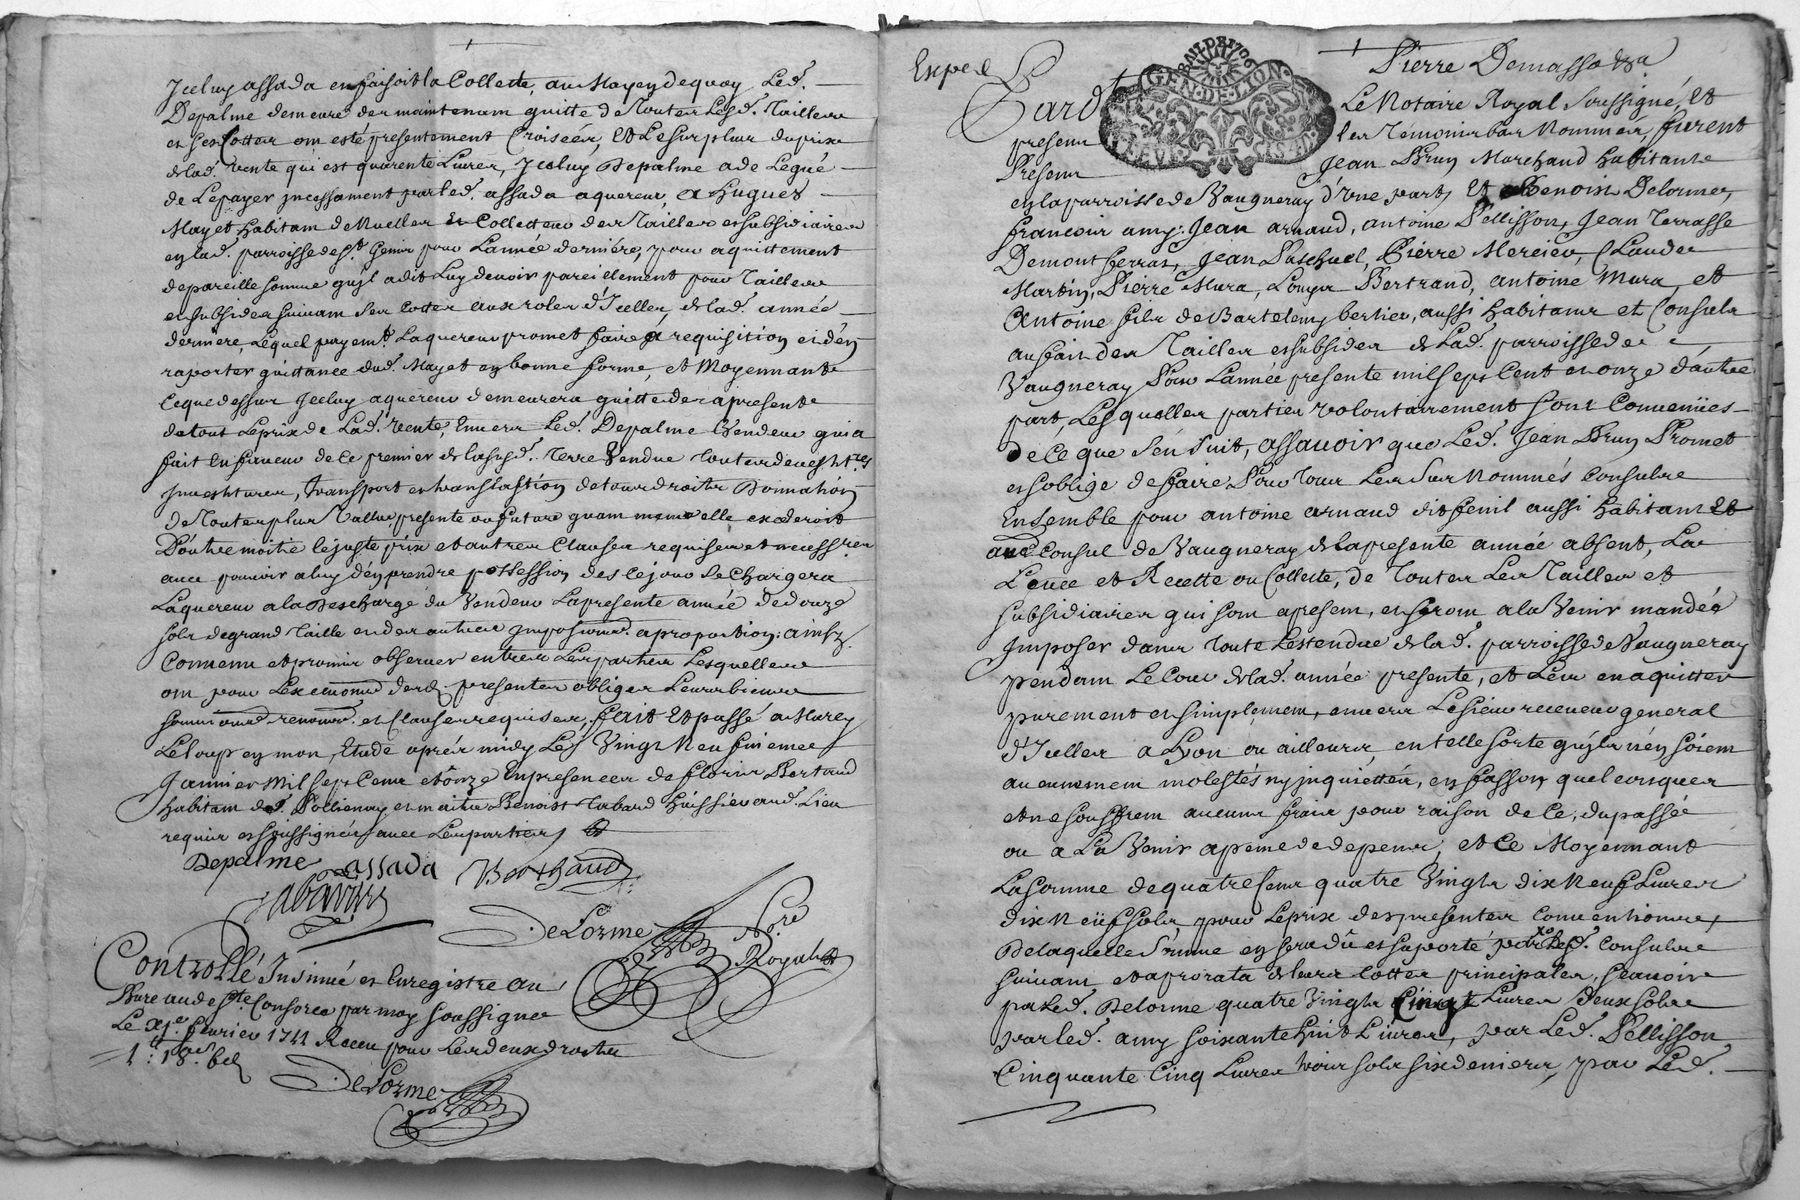 Jceluy assada en faisoit la Collecte, au Moyen dequoy Led.
Depalme demeure des maintenant quitte de Toutes Lesd. Tailles
et ses Cottes ont esté presentement Croisées, Et Le surplus du prix
de lad. vente qui est quarente Livres, Jceluy Depalme a delegué
de Le payer jncessament par led. assada aquereur, a Hugues
Mayet habitant de Ruelles et Collecteur des Tailles et subsidiaires
en lad. parroisse de St. Genis pour L'année derniére, pour aquittement
de pareille somme qu'jl a dit Luy devoir pareillement pour Tailles
et subsides suivant ses cottes aux roles d'Jcelles de lad. année
derniere, Lequel payemt. Laquereur promet faire a requisition et d'en
raporter quittance dud. Mayet en bonne forme, et Moyennant
Ce que dessus Jceluy aquereur demeurera quitte des a present
de tout Le prix de Lad. vente, Envers Led. Depalme Vendeur qui a
fait En faveur de ce premier de la susd. Terre Vendue toutes devestres
jnvestitures, transport et translastion de tous droits Donnation
de Toutes plus Vallue presente ou future quant mesme elle excederoit
D'outre moitie le juste prix et autres Clauses requises et necessres
avec pouvoir a luy d'en prendre possession des ce jour se Chargera
Laquereur a la descharge du Vendeur La presente année de douze
sols de grand Taille et des autres jmpositions a proportion; ainsy
Convenu et promis observer entre Les parties Lesquelles
ont pour L'execution des presentes obligés Leurs biens
soumissions renonc. et Clauses requises, fait Et passé a Marcy
Le loup en mon Etude aprés midy Le Vingt Neufviéme
Janvier Mil sept Cent et onze En presence de Floris Bertaud
habitant de Pollionay et maitre Benoist Tabard huissier aud. Lieu
requis et soussignés avec Les parties
Depalme assada Berthaud
Tabard
DeLorme Nore
Royal
Controllé Jnsinué et Enregistré au
Bureau de Ste. Consorce par moy soussigné
Le XIe. fevrier 1711 Receu pour Les deux droits
1. 18. 6d
DeLorme
Exped
Pierre Demassoda
Pard Le Notaire Royal Soussigné, Et
present les Témoins bas Nommés, furent
Present Jean Brun Marchand habitant
en la parroisse de Vaugneray d'Vne part, Et Benoist Delorme,
francois amy, Jean arnaud, antoine Pellisson, Jean Terrasse
Demontferrat, Jean Paschal, Pierre Mercier, Claude
Martin, Pierre Mura, Louys Bertrand, antoine Mura, et
Antoine fils de Bartelemy berlier, aussi habitants et Consuls
au fait des Tailles et subsides de Lad. parroisse de
Vaugneray Pour L'année presente mil sept Cent et onze d'autre
part, Lesquelles parties volontairement sont Convenües
de Ce que S'en suit, assavoir que Led. Jean Brun Promet
et s'oblige de faire Pour Tous Les Sus Nommés Consuls
Ensemble pour antoine arnaud dit fenil aussi habitant Et
Consul de Vaugneray de la presente année absent, La
Levée et Recette ou Collecte, de Toutes Les Tailles et
subsidiaires qui sont a present, et seront a la Venir mandés
Jmposer dans toute L'estendue de lad. parroisse de Vaugneray
pendant Le Cour de lad. année presente, et Les en aquitter
purement et simplement, envers Le sieur receveur general
d'Jcelles a Lyon ou ailleurs, en telle sorte qu'jls n'en soient
aucunement molestés ny jnquiéttés, en fasson quelconques
et ne souffrent aucuns frais pour raison de Ce, du passé
ou a La Venir a peine de depens, et Ce Moyennant
La somme de quatre Cent quatre Vingts dix Neuf Livres
dix Neüf sols, pour Le prix des presentes Conventions,
De laquelle Somme en sera dû et suporté par lesd. Consuls
suivant et a prorata de leurs Cottes principales, scavoir
par Led. Delorme quatre Vingts Cinq Livres deux sols
par led. amy soixante huit Livres, par Led. Pellisson
Cinquante Cinq Livres trois sols six deniers, par Led.